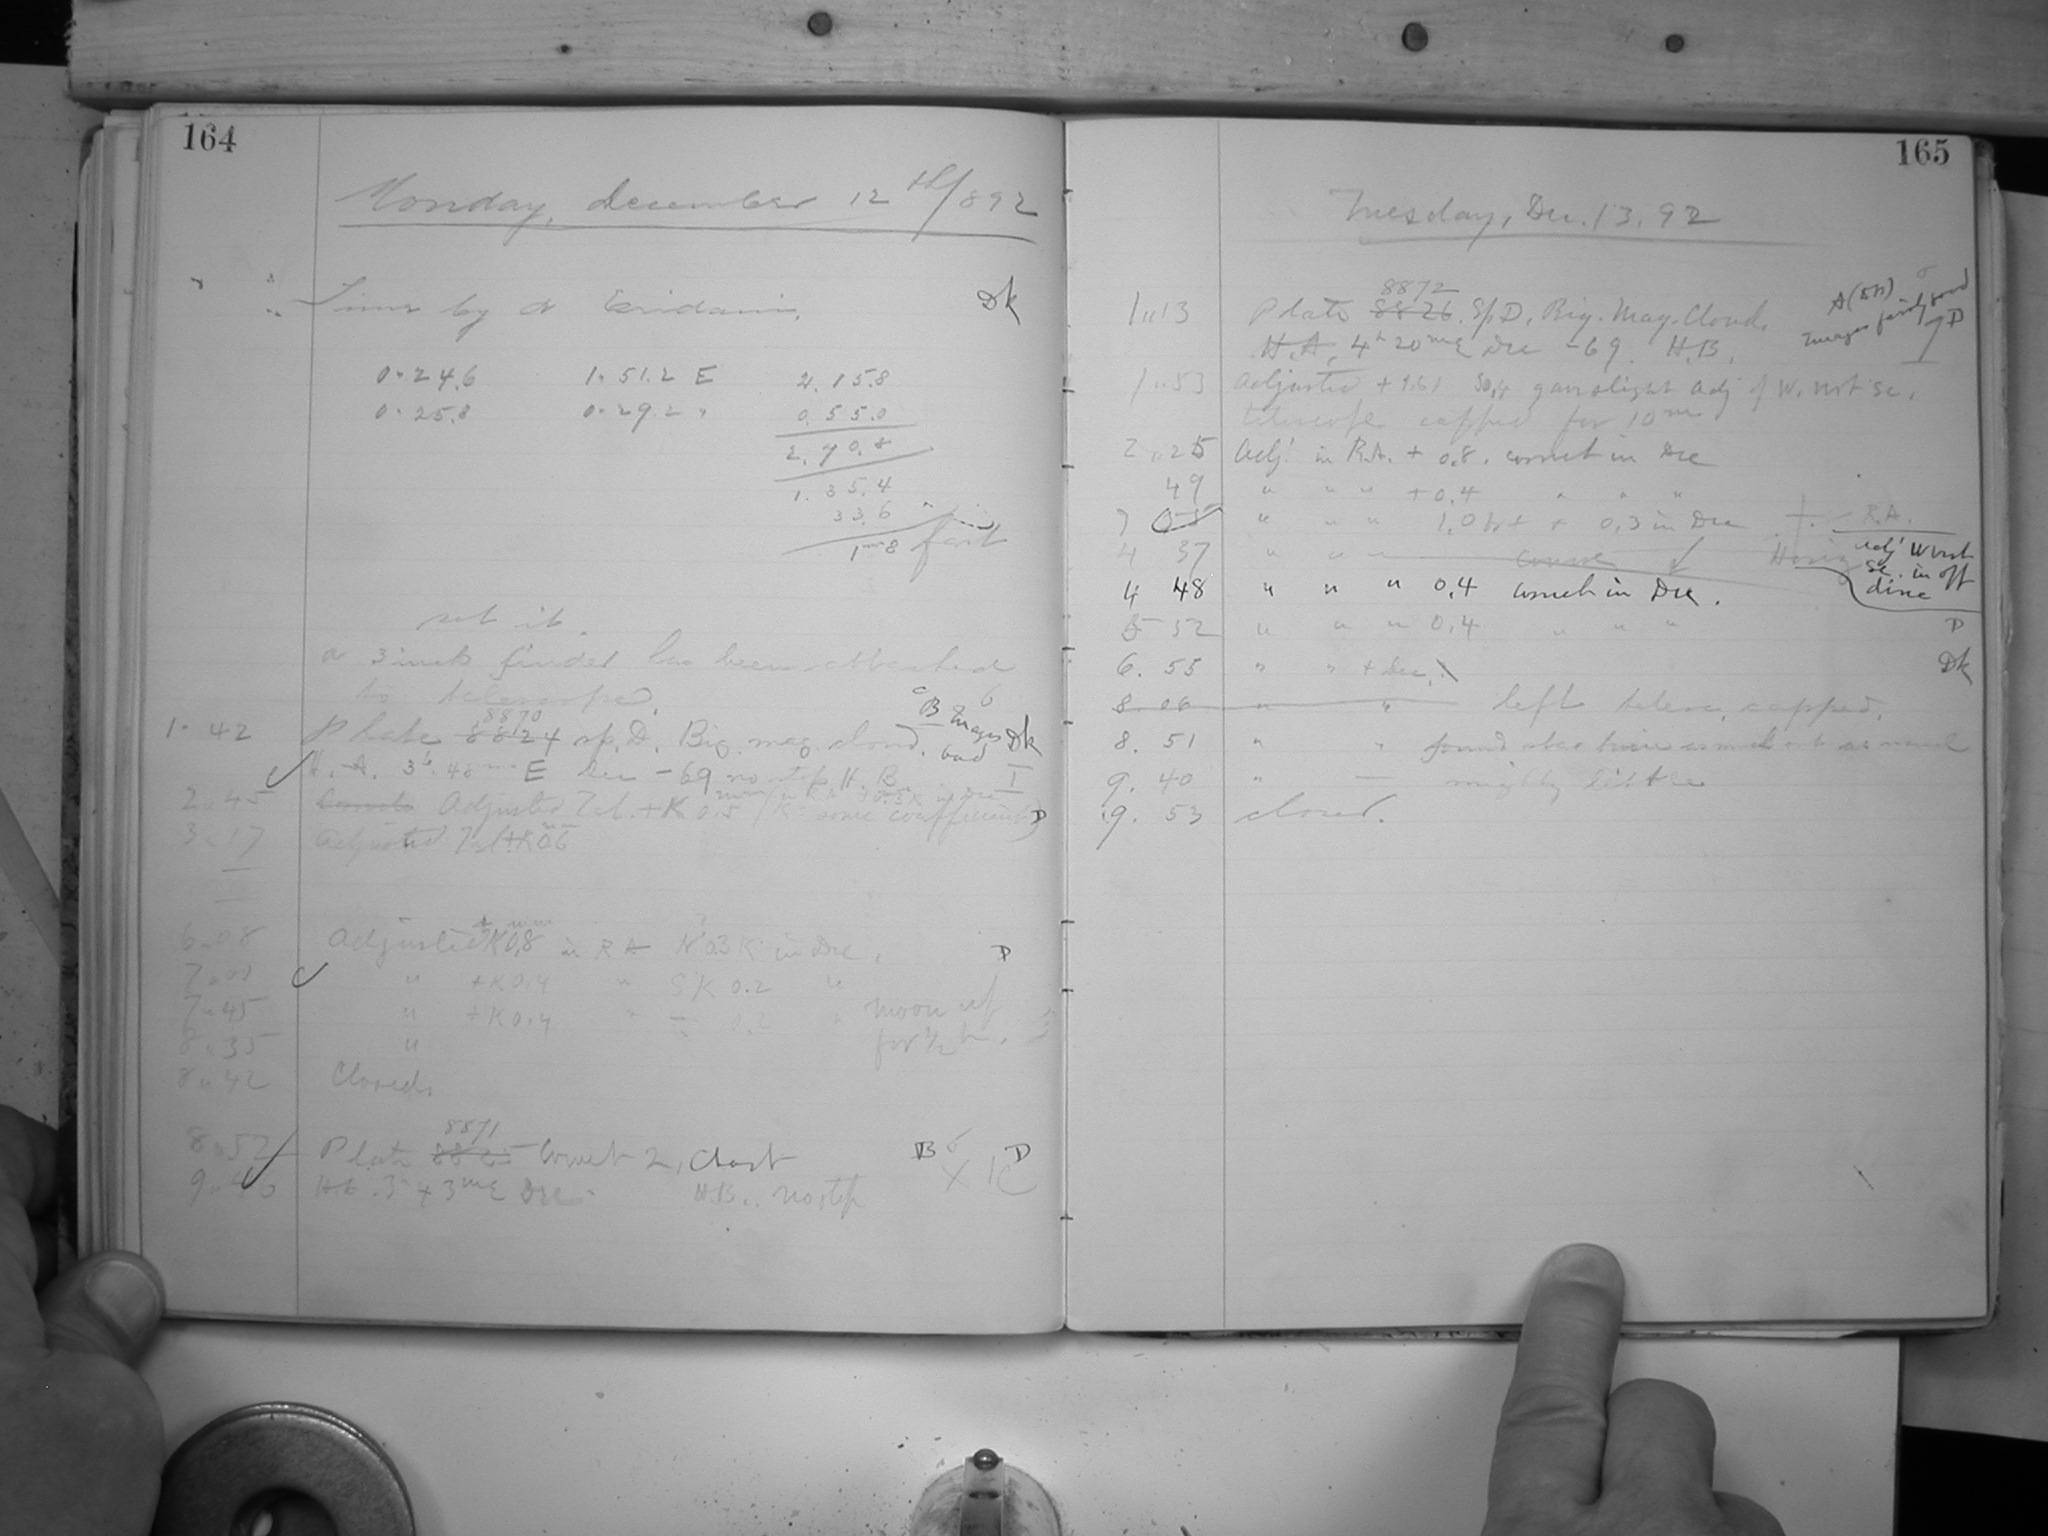 164
Monday, December 12th/892
Time by α Eridani. Dk
0.24.6 1.51.2 E 2.15.8
0.25.8 0.29.2 " 0.55.0
2.70.8
1.35.4
33.6
1m8 fast
set it.
a 3 inch finder has been attached
to telescope.
8870 B Images bad
1.42 Plate 8824 sp. D. Big. mag. cloud. Dk
H.A. 3h.48m E Dec -69 no stop H.B. I
2.45 Adjusted Tel. +K 0.5 (K some coefficient) D
3.17 Adjusted Tel +K 0.6
6.08 Adjusted +K 0.8 in RA N 0.3 K in Dec. D
7.00 " +K 0.4 " S K 0.2 "
7.45 " +K 0.4 " 0.2 " moon up
8.35 " for ½ h.
8.42 Closed.
8871
8.52 Plate Comet 2, Chart B D
H.A. 3h 43m E Dec. H.B. No stop
165
Tuesday, Dec. 13. 92
8872
1.13 Plate 8826. Sp. D. Big. Mag. Cloud. Images fairly good D
H.A. 4h 20m E Dec -69. H.B.
1.53 Adjusted gave slight adj of W. not sc.
telescope capped for 10m
2.25 Adj! in R.A. + 0.8. correct in Dec
49 " " " +0.4 " " "
" " " 1.0 + 0.3 in Dec R.A.
4 37 " " Adj! W not
sc. in off
dine
4 48 " " " 0.4 correct in Dec.
5 52 " " " 0.4 " " " D
6. 55 " " + Dec. Dk
8. 06 " " left telesc. capped.
8. 51 " " found star twice as much out as usual
9. 40 " — mighty little
9. 53 closed.